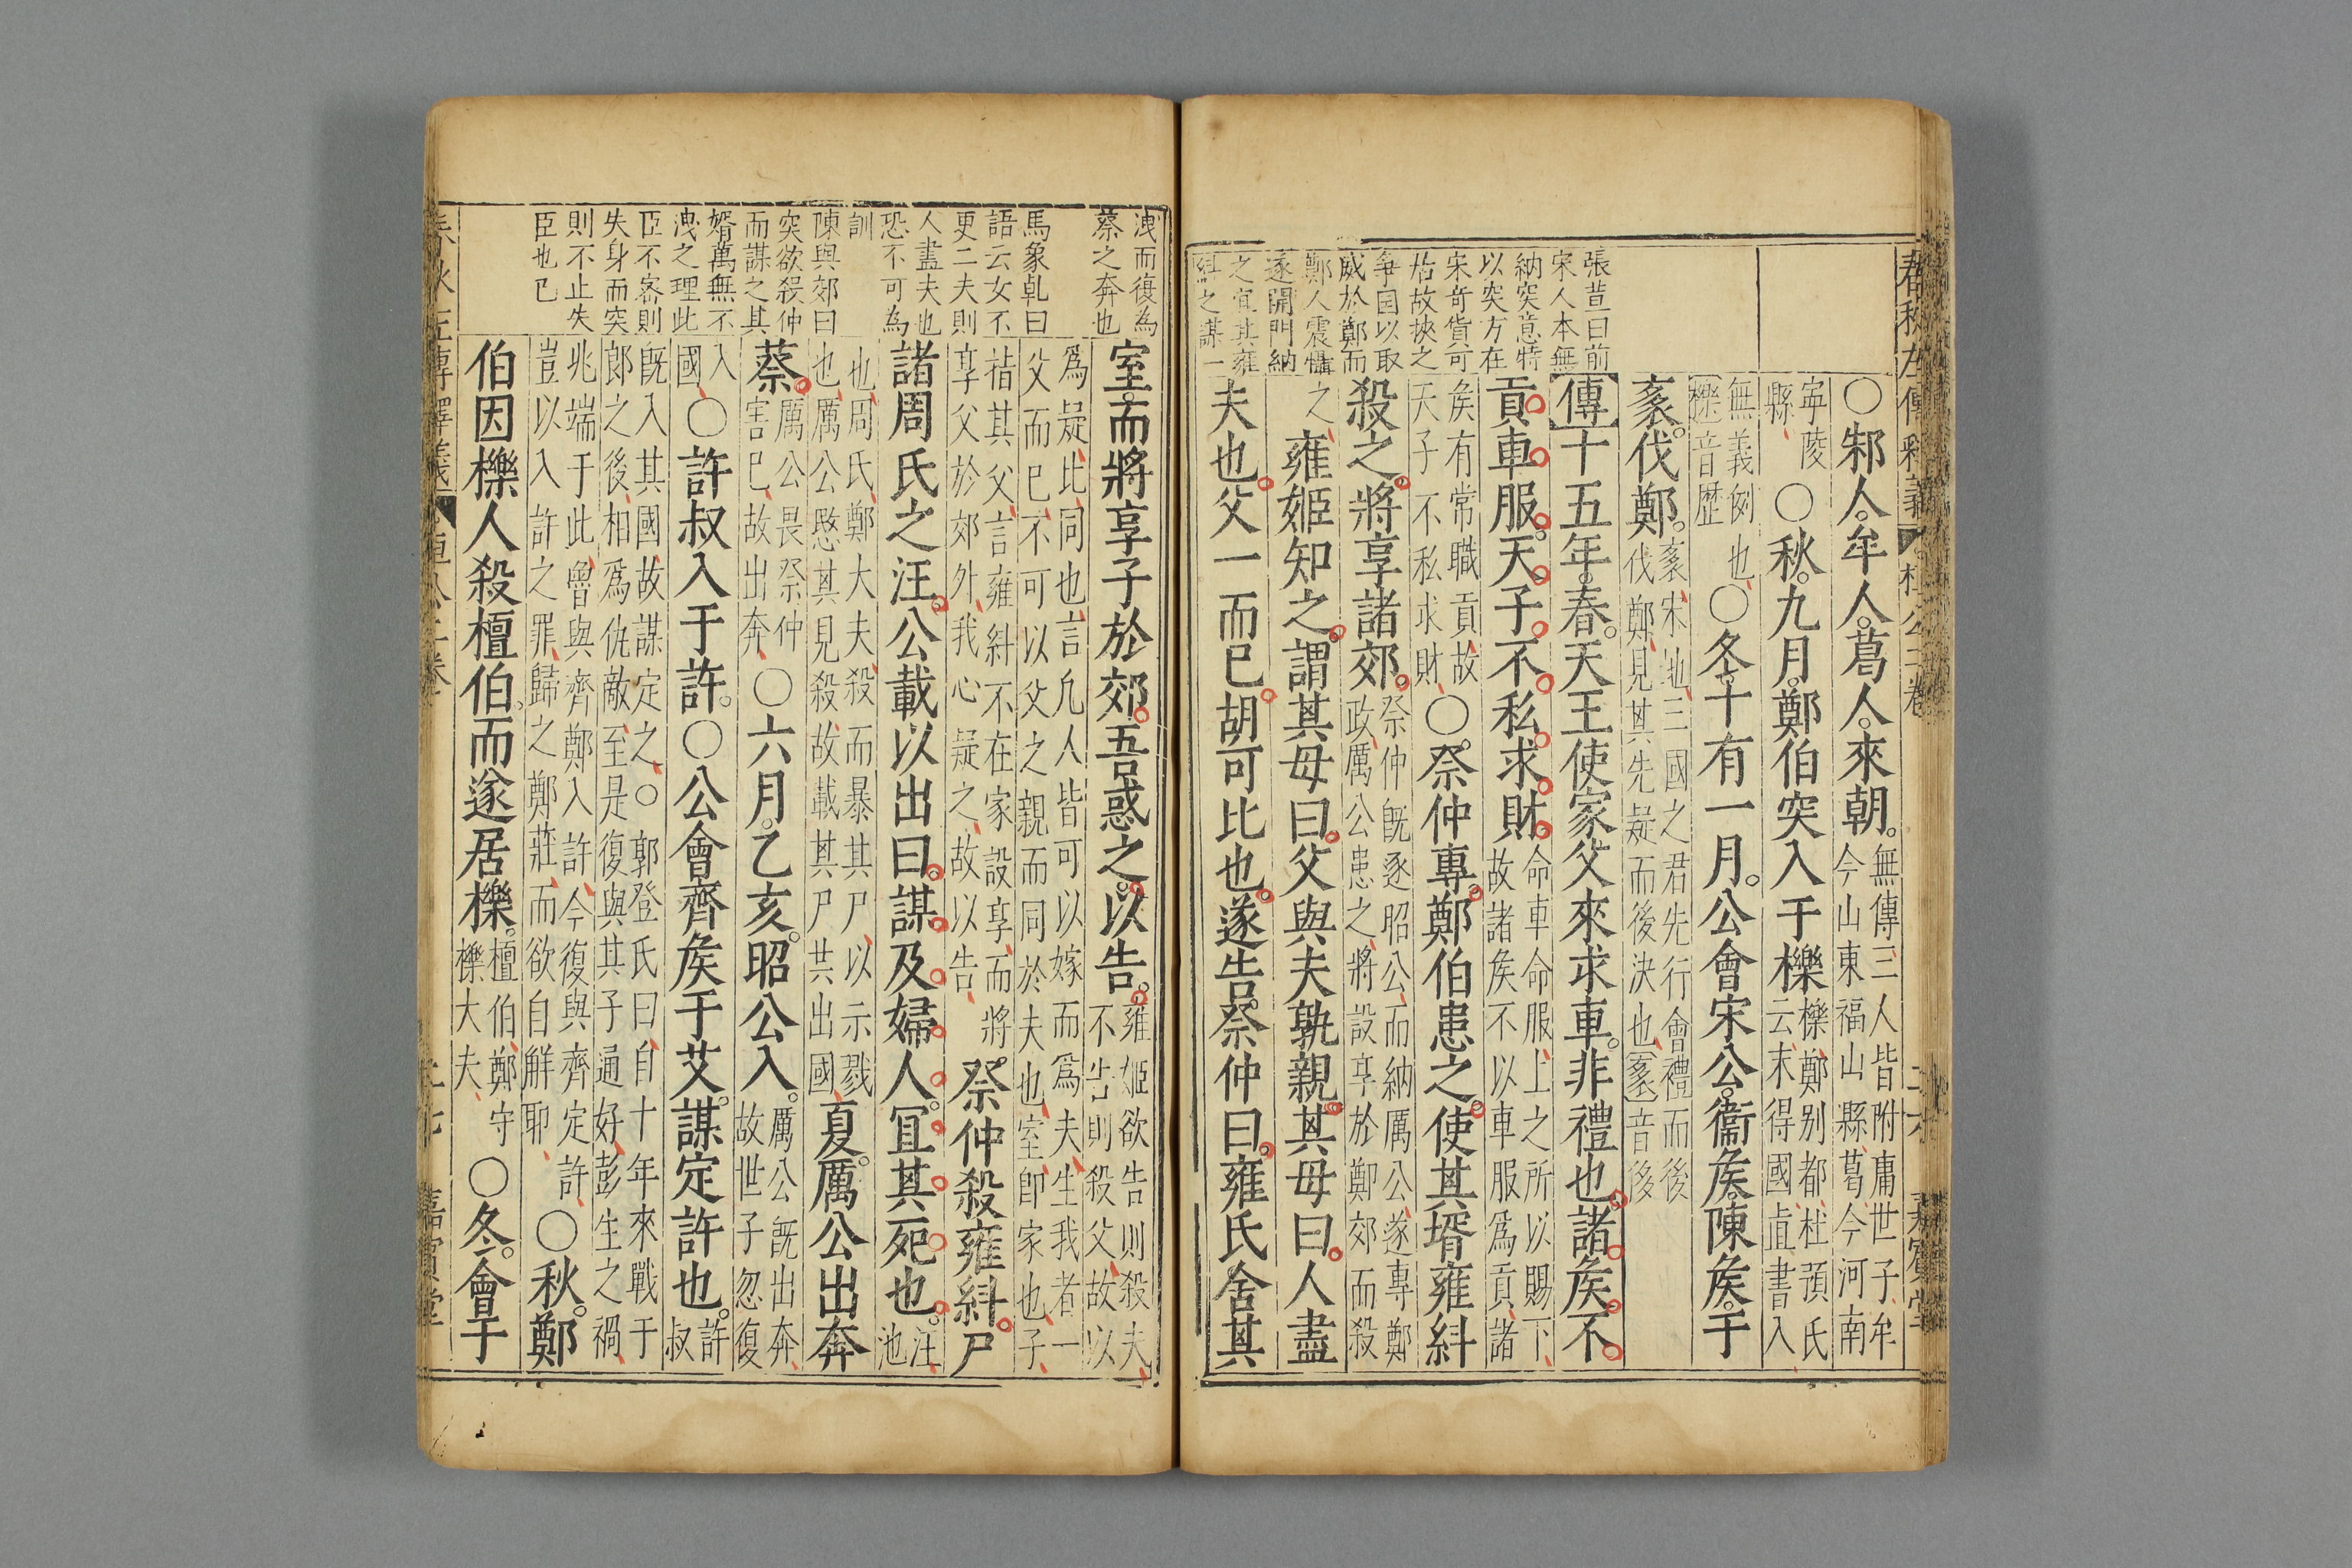 春秋左傳釋義 桓公二卷
〇邾人牟人葛人來朝無傳三人皆附庸世子牟
今山東福山縣葛今河南
寧陵
縣〇秋九月鄭伯突入于櫟櫟鄭别都杜預氏
云末得國直書入
無義例也
櫟音歴〇冬十有一月公會宋公衞矦陳矦于
袲伐鄭袲宋地三國之君先行會禮而後
伐鄭見其先疑而後決也袲音侈
傳十五年春天王使家父來求車非禮也諸矦不
貢車服天子不私求財命車命服上之所以賜下
故諸矦不以車服爲貢諸
矦有常職貢故
天子不私求財〇祭仲專鄭伯患之使其壻雍糾
殺之將享諸郊祭仲旣逐昭公而納厲公遂專鄭
政厲公患之將設享於鄭郊而殺
之雍姬知之謂其母曰父與夫孰親其母曰人盡
夫也父一而已胡可比也遂告祭仲曰雍氏舍其
張荁曰前
宋人本無
納突意特
以突方在
宋奇貨可
居故挾之
争国以取
威於鄭而
鄭人震懾
遂開門納
之宜其雍
糾之謀一
洩而復為
蔡之奔也
馬象乹曰
語云女不
更二夫則
人盡夫也
恐不可為
訓
陳與郊曰
突欲殺仲
而謀之其
婿萬無不
洩之理此
臣不宻則
失身而突
則不止失
臣也已
室而將享子於郊吾惑之以告雍姬欲告則殺夫
不告則殺父故以
爲疑比同也言凡人皆可以嫁而爲夫生我者一
父而已不可以父之親而同於夫也室即家也子
指其父言雍糾不在家設享而將
享父於郊外我心疑之故以告祭仲殺雍糾尸
諸周氏之汪公載以出曰謀及婦人冝其死也汪
池
也周氏鄭大夫殺而暴其尸以示戮
也厲公愍其見殺故載其尸共出國夏厲公出奔
蔡厲公畏祭仲
害已故出奔〇六月乙亥昭公入厲公旣出奔
故世子忽復
入
國〇許叔入于許〇公會齊矦于艾謀定許也許
叔
旣入其國故謀定之〇郭登氏曰自十年來戰于
郎之後相爲仇敵至是復與其子通好彭生之禍
兆端于此魯與齊鄭入許今復與齊定許
豈以入許之罪歸之鄭莊而欲自觧耶〇秋鄭
伯因櫟人殺檀伯而遂居櫟檀伯鄭守
櫟大夫〇冬會于